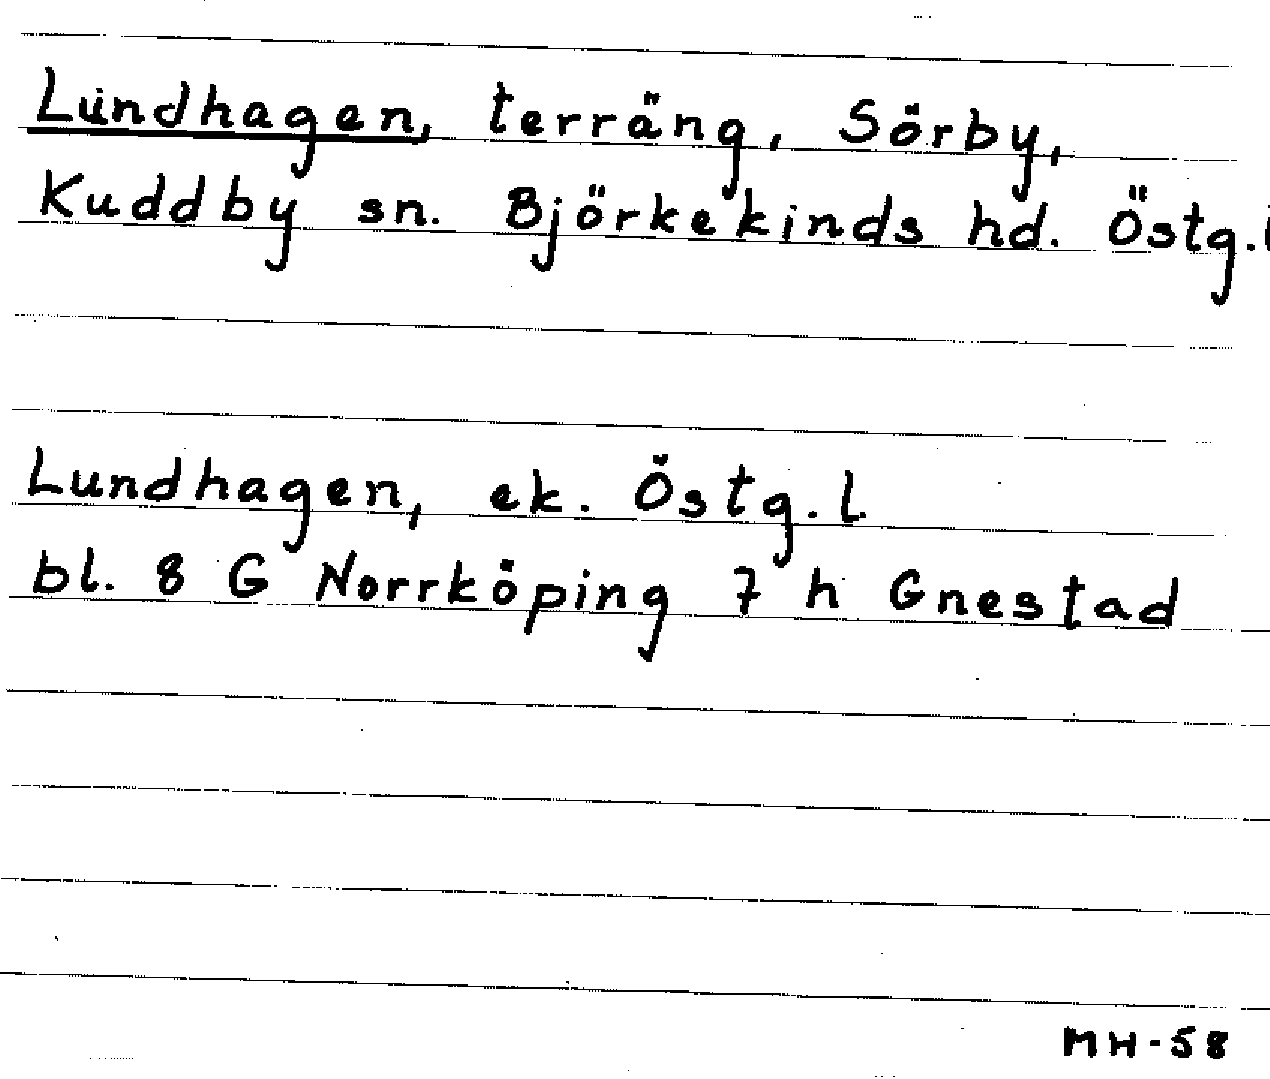 Lundhagen, terräng, Sörby,
Kuddby sn. Björkekinds hd. Östg.l
Lundhagen, ek. Östg.l.
bl. 8 G Norrköping 7 h Gnestad
MH-58